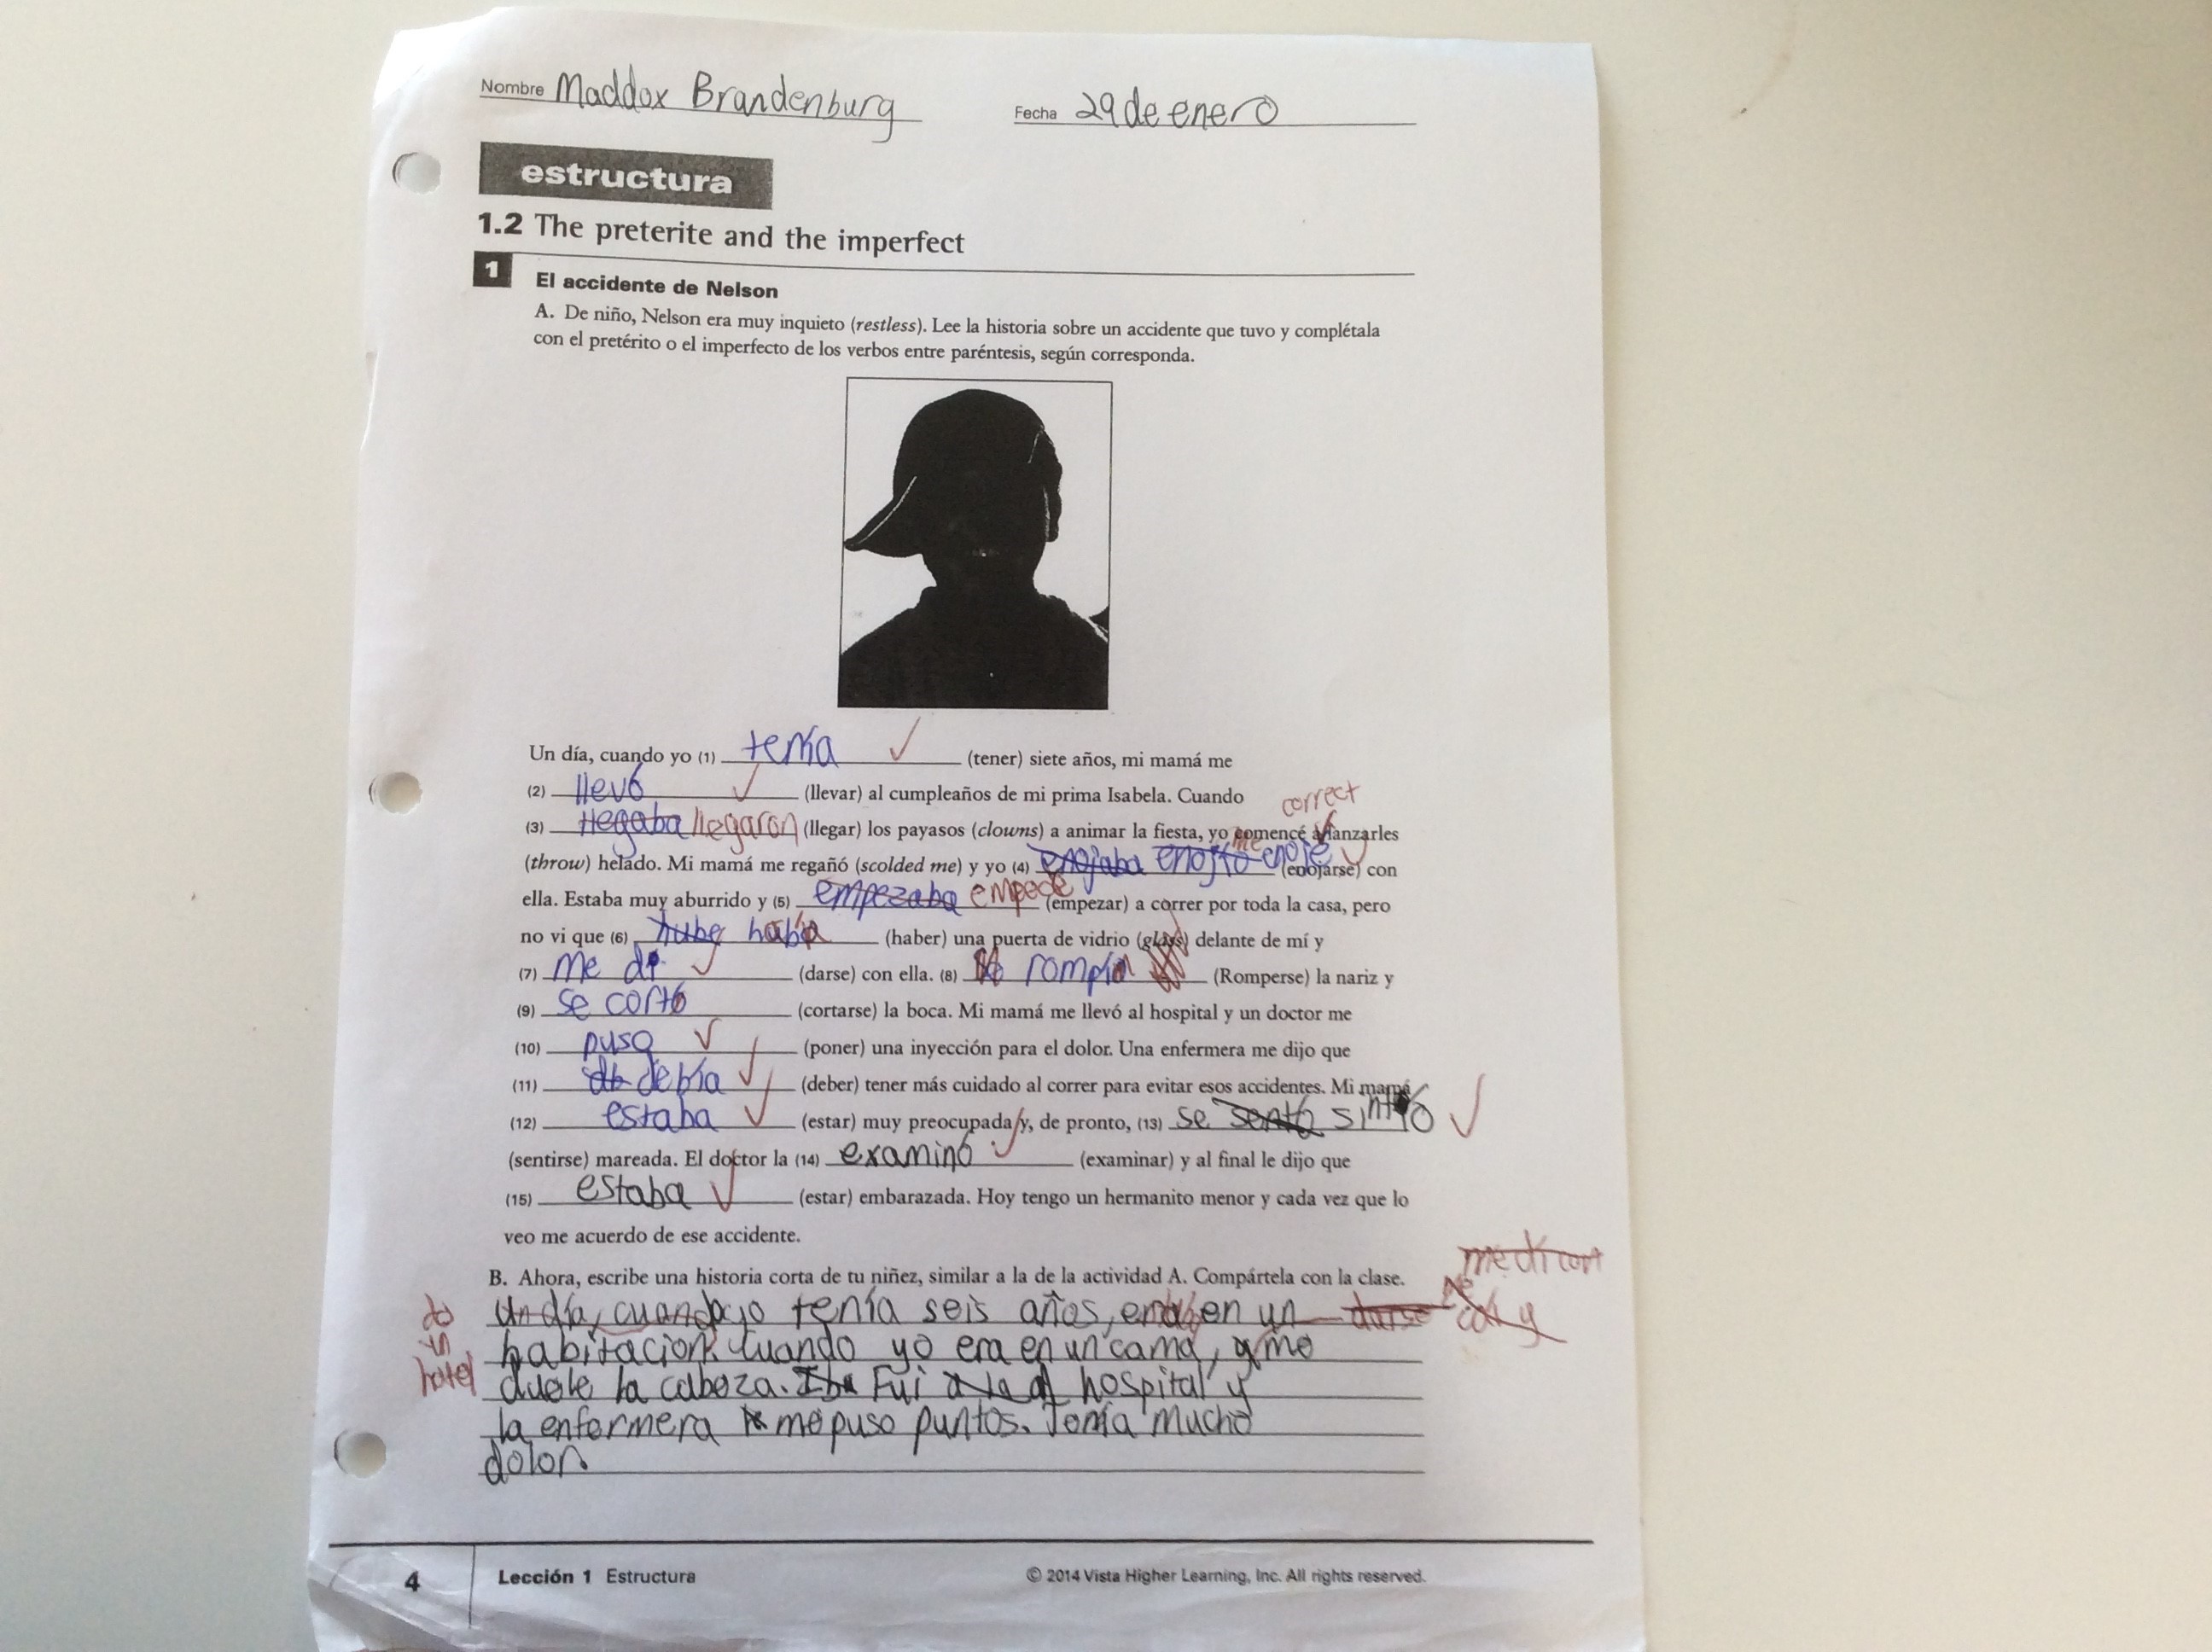 Nombre Maddox Brandenburg Fecha 29 de enero
estructura
1.2 The preterite and the imperfect
1 El accidente de Nelson
A. De niño, Nelson era muy inquieto (restless). Lee la historia sobre un accidente que tuvo y complétala
con el pretérito o el imperfecto de los verbos entre paréntesis, según corresponda.
Un día, cuando yo (1) tenía (tener) siete años, mi mamá me
(2) llevó (llevar) al cumpleaños de mi prima Isabela. Cuando
correct
(3) llegaba llegaron (llegar) los payasos (clowns) a animar la fiesta, yo comencé a lanzarles
me
(throw) helado. Mi mamá me regañó (scolded me) y yo (4) enojaba enojto enojé (enojarse) con
ella. Estaba muy aburrido y (5) empezaba (empezar) a correr por toda la casa, pero
no vi que (6) hube había (haber) una puerta de vidrio (glass) delante de mí y
(7) me di (darse) con ella. (8) rompía (Romperse) la nariz y
(9) se cortó (cortarse) la boca. Mi mamá me llevó al hospital y un doctor me
(10) puso (poner) una inyección para el dolor. Una enfermera me dijo que
(11) db debía (deber) tener más cuidado al correr para evitar esos accidentes. Mi mamá
(12) estaba (estar) muy preocupada y, de pronto, (13) se sentó sintió
(sentirse) mareada. El doctor la (14) examinó (examinar) y al final le dijo que
(15) estaba (estar) embarazada. Hoy tengo un hermanito menor y cada vez que lo
veo me acuerdo de ese accidente.
B. Ahora, escribe una historia corta de tu niñez, similar a la de la actividad A. Compártela con la clase.
Un día, cuando yo tenía seis años, en un darse
habitación. Cuando yo era en un cama, y me
hotel duele la cabeza. Iba Fui a la al hospital y
la enfermera me puso puntos. Tenía mucho
dolor.
4 Lección 1 Estructura © 2014 Vista Higher Learning, Inc. All rights reserved.